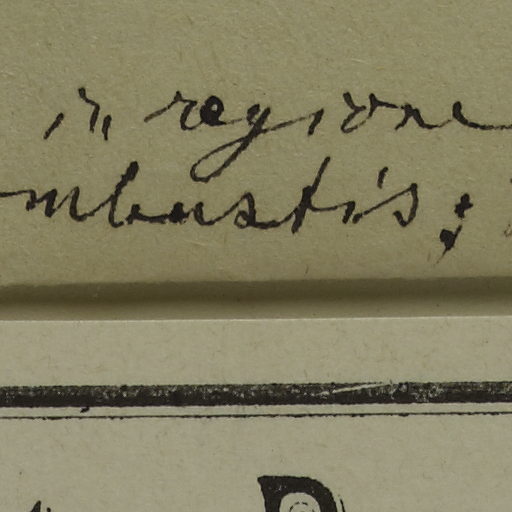 in regione
mbustis;